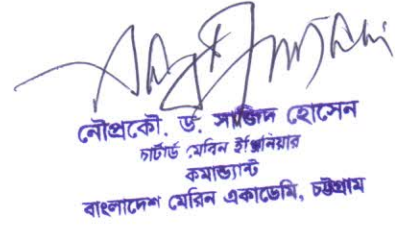 নৌপ্রকৌ. ড. সাজিদ হোসেন
চার্টার্ড মেরিন ইঞ্জিনিয়ার
কমান্ড্যান্ট
বাংলাদেশ মেরিন একাডেমি, চট্টগ্রাম